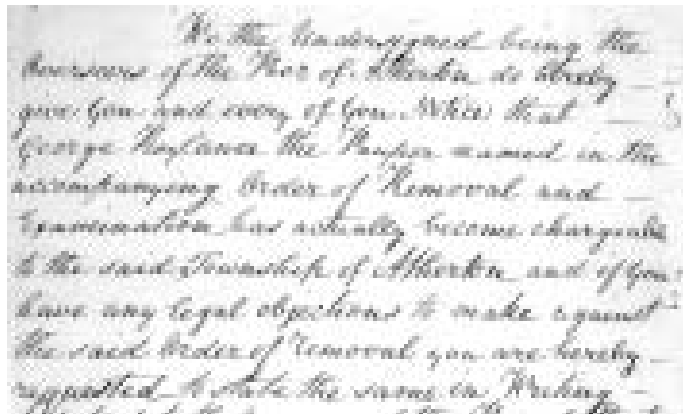 We the Undersigned being the
Overseers of the Poor of Atherton do hereby
give You and every of You Notice that
George the Pauper named in the
accompanying Order of Removal and
Examination has actually become chargeable
to the said Township of Atherton and if You
have any legal objections to make against
the said Order of Removal you are hereby
requested to state the same in Writing